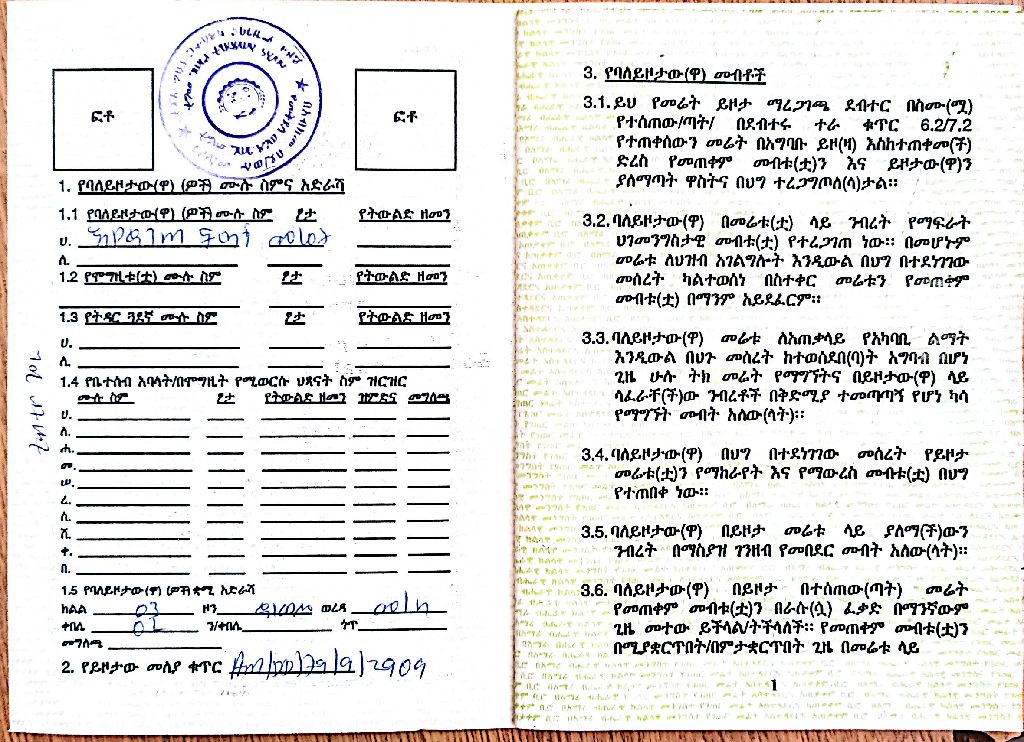 ፎቶ
ፎቶ
1. የባለይዞታው(ዋ) (ዎች) ሙሉ ስምና አድራሻ
1.1 የባለይዞታው(ዋ) (ዎች) ሙሉ ስም ፆታ የትውልድ ዘመን
ሀ.
ለ.
1.2 የሞግዚቱ(ቷ) ሙሉ ስም ፆታ የትውልድ ዘመን
1.3 የትዳር ጓደኛ ሙሉ ስም ፆታ የትውልድ ዘመን
ሀ.
ለ.
1.4 የቤተሰብ አባላት/በሞግዚት የሚወርሱ ህጻናት ስም ዝርዝር
ሙሉ ስም ፆታ የትውልድ ዘመን ዝምድና መግለጫ
ሀ.
ለ.
ሐ.
መ.
ሠ.
ረ.
ሰ.
ሸ.
ቀ.
በ.
1.5 የባለይዞታው(ዋ) (ዎች) ቋሚ አድራሻ
ክልል 03 ዞን ወረዳ
ቀበሌ 01 ን/ቀበሌ ጎጥ
መግለጫ
2. የይዞታው መለያ ቁጥር
3. የባለይዞታው(ዋ) መብቶች
3.1. ይህ የመሬት ይዞታ ማረጋገጫ ደብተር በስሙ(ሟ)
የተሰጠው/ጣት/ በደብተሩ ተራ ቁጥር 6.2/7.2
የተጠቀሰውን መሬት በአግባቡ ይዞ(ዛ) እስከተጠቀመ(ች)
ድረስ የመጠቀም መብቱ(ቷ)ን እና ይዞታው(ዋ)ን
ያለማጣት ዋስትና በህግ ተረጋግጦለ(ላ)ታል።
3.2. ባለይዞታው(ዋ) በመሬቱ(ቷ) ላይ ንብረት የማፍራት
ህገመንግስታዊ መብቱ(ቷ) የተረጋገጠ ነው። በመሆኑም
መሬቱ ለህዝብ አገልግሎት እንዲውል በህግ በተደነገገው
መሰረት ካልተወሰነ በስተቀር መሬቱን የመጠቀም
መብቱ(ቷ) በማንም አይደፈርም።
3.3. ባለይዞታው(ዋ) መሬቱ ለአጠቃላይ የአካባቢ ልማት
እንዲውል በህጉ መሰረት ከተወሰደበ(ባ)ት አግባብ በሆነ
ጊዜ ሁሉ ትክ መሬት የማግኘትና በይዞታው(ዋ) ላይ
ላፈራቸ(ች)ው ንብረቶች በቅድሚያ ተመጣጣኝ የሆነ ካሳ
የማግኘት መብት አለው(ላት)።
3.4. ባለይዞታው(ዋ) በህግ በተደነገገው መሰረት የይዞታ
መሬቱ(ቷ)ን የማከራየት እና የማውረስ መብቱ(ቷ) በህግ
የተጠበቀ ነው።
3.5. ባለይዞታው(ዋ) በይዞታ መሬቱ ላይ ያለማ(ች)ውን
ንብረት በማስያዝ ገንዘብ የመበደር መብት አለው(ላት)።
3.6. ባለይዞታው(ዋ) በይዞታ በተሰጠው(ጣት) መሬት
የመጠቀም መብቱ(ቷ)ን በራሱ(ሷ) ፈቃድ በማንኛውም
ጊዜ መተው ይችላል/ትችላለች። የመጠቀም መብቱ(ቷ)ን
በሚያቋርጥበት/በምታቋርጥበት ጊዜ በመሬቱ ላይ
1